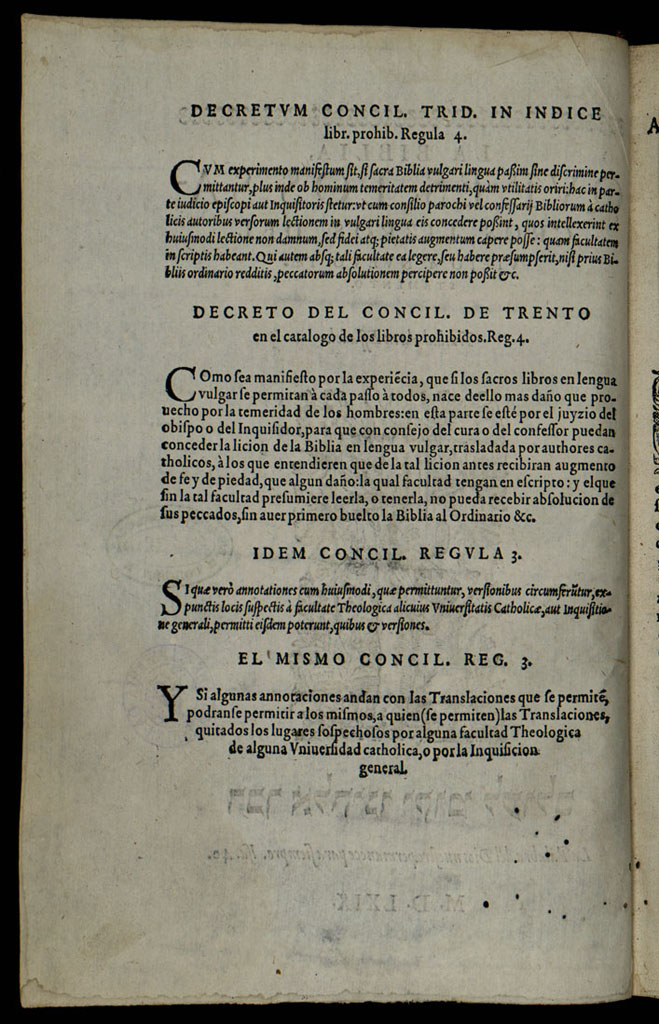 DECRETVM CONCIL. TRID. IN INDICE
libr. prohib. Regula 4.
CVM experimento manifestum sit, si sacra Biblia vulgari lingua paßim sine discrimine per-
mittantur, plus inde ob hominum temeritatem detrimenti, quàm vtilitatis oriri: hac in par-
te iudicio episcopi aut Inquisitoris stetur: vt cum consilio parochi vel confessarij Bibliorum à catho
licis autoribus versorum lectionem in vulgari lingua eis concedere poßint, quos intellexerint ex
huiusmodi lectione non damnum, sed fidei atq; pietatis augmentum capere posse: quam facultatem
in scriptis habeant. Qui autem absq; tali facultate ea legere, seu habere præsumpserit, nisi prius Bi-
bliis ordinario redditis, peccatorum absolutionem percipere non poßit &c.
DECRETO DEL CONCIL. DE TRENTO
en el catalogo de los libros prohibidos. Reg. 4.
COmo sea manifiesto por la experiẽcia, que si los sacros libros en lengua
vulgar se permitan à cada passo à todos, nace deello mas daño que pro-
uecho por la temeridad de los hombres: en esta parte se esté por el juyzio del
obispo o del Inquisidor, para que con consejo del cura o del confessor puedan
conceder la licion de la Biblia en lengua vulgar, trasladada por authores ca-
tholicos, à los que entendieren que de la tal licion antes recibiran augmento
de fe y de piedad, que algun daño: la qual facultad tengan en escripto: y el que
sin la tal facultad presumiere leerla, o tenerla, no pueda recebir absolucion de
sus peccados, sin auer primero buelto la Biblia al Ordinario &c.
IDEM CONCIL. REGVLA 3.
SI quæ verò annotationes cum huiusmodi, quæ permittuntur, versionibus circumferũtur, ex-
punctis locis suspectis à facultate Theologica alicuius Vniuersitatis Catholicæ, aut Inquisitio-
ne generali, permitti eisdem poterunt, quibus & versiones.
EL MISMO CONCIL. REG. 3.
Y Si algunas annotaciones andan con las Translaciones que se permitẽ,
podranse permitir a los mismos, a quien (se permiten) las Translaciones,
quitados los lugares sospechosos por alguna facultad Theologica
de alguna Vniuersidad catholica, o por la Inquisicion
general.